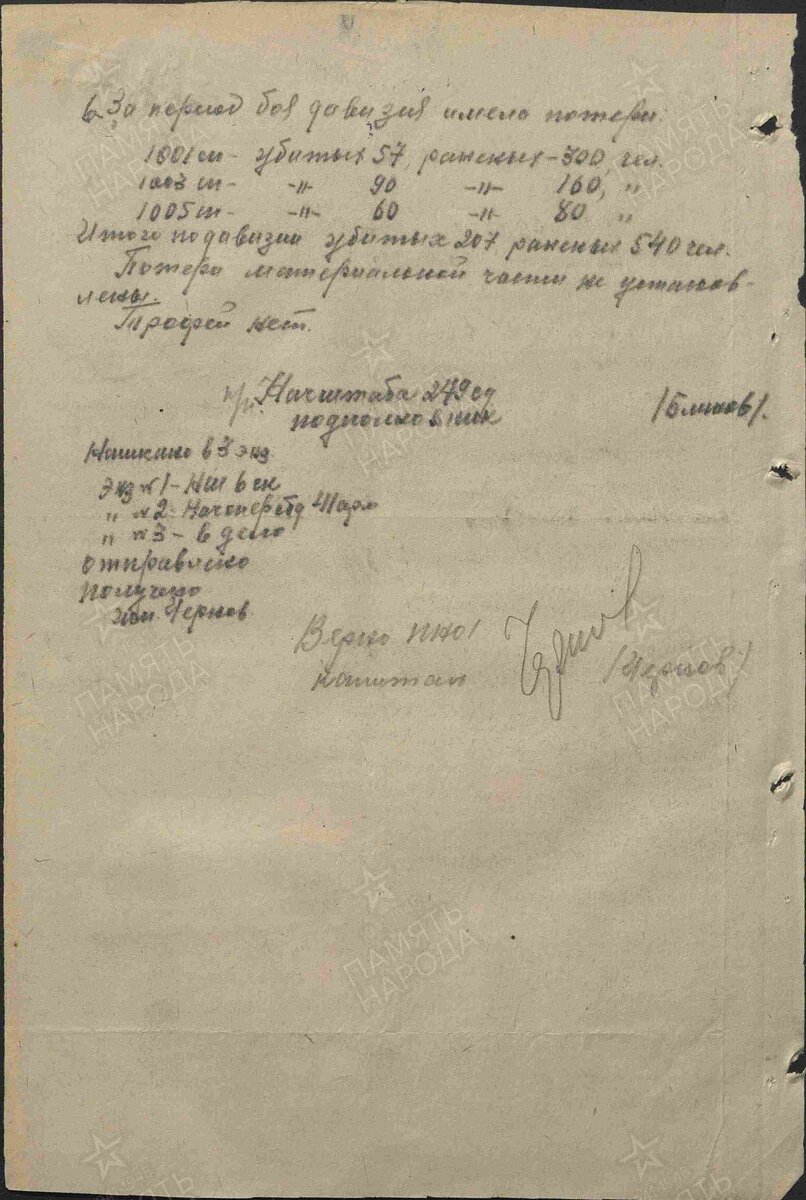 6. За период боя дивизия имела потери:
1001 сп – убитых 57, раненых – 300, чел.
1003 сп – -"- 90 -"- 160, "
1005 сп – -"- 60 -"- 80 "
Итого по дивизии убитых 207 раненых 540 чел.
Потери материальной части не установ-
лены.
Трофей нет.
п/п. Начштаба 279 сд
подполковник /Блинов/.
Написано в 3 экз
экз №1 – НШ 6 ск
" №2 –
" №3 – в дело
отправлено
получено
Чернов
Верно ПНО1
капитан /Чернов/
ПАМЯТЬ НАРОДА